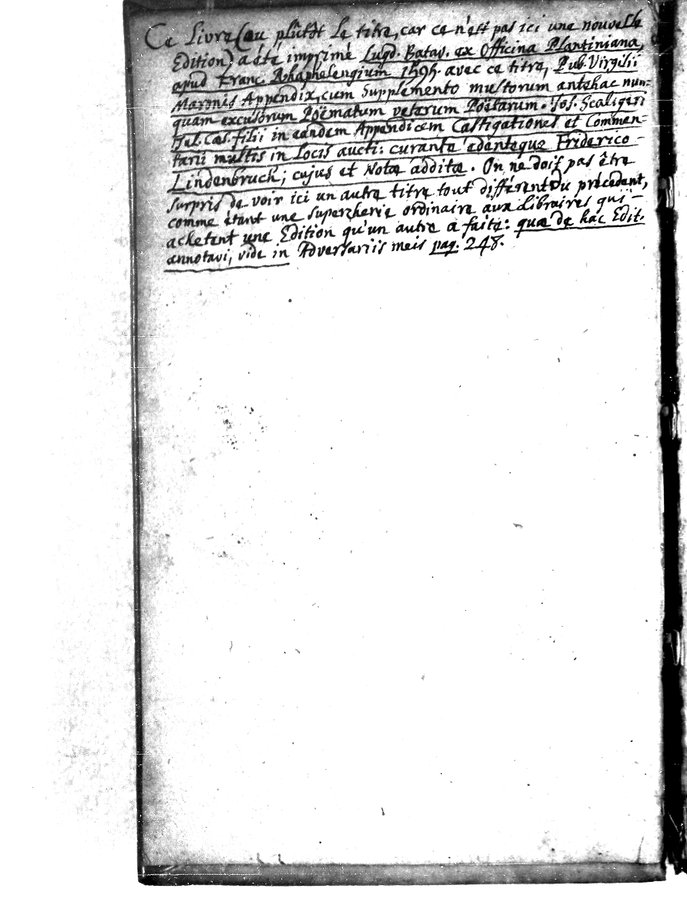 Ce Livre (ou plûtôt le titre, car ce n'est pas ici une nouvelle
Edition) a été imprimé Lugd. Batav. ex Officina Plantiniana,
apud Franc. Rhaphelengium 1595. avec ce titre, Pub. Virgilii
Maronis Appendix, cum Supplemento multorum antehac nun-
quam excusorum Poëmatum veterum Poëtarum. Jos. Scaligeri
Jul. Cæs. Filii in eandem Appendicem Castigationes et Commen-
tarii multis in Locis aucti: curante edenteque Friderico
Lindenbruch; cujus et Notæ additæ. On ne doit pas être
surpris de voir ici un autre titre tout différent du précédent,
comme étant une supercherie ordinaire aux libraires qui
achetent une Edition qu'un autre a faite: quæ de hac Edit.
annotavi, vide in Adversariis meis pag. 248.